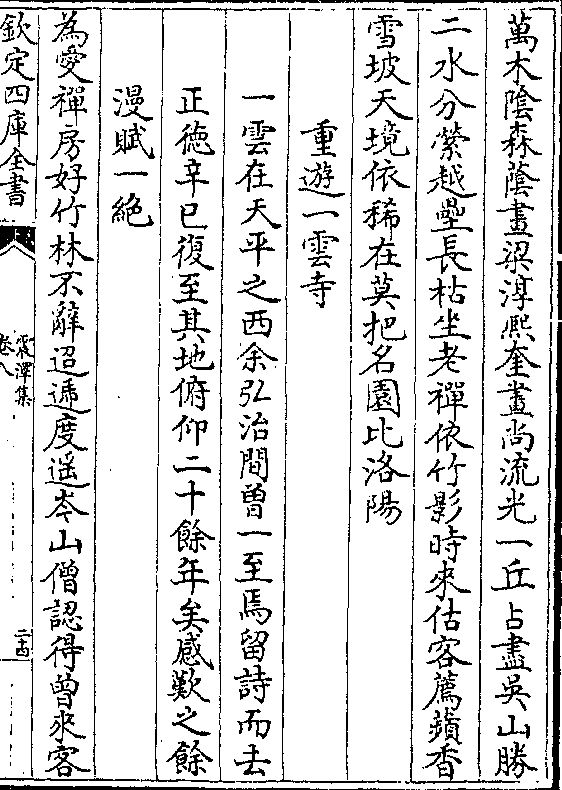 萬木陰森蔭畫梁淳熈奎畫尚流光一丘占盡吳山勝
二水分縈越壘長枯坐老禪依竹影時來估客薦蘋香
雪坡天境依稀在莫把名園比洛陽
重遊一雲寺
一雲在天平之西余弘治間曾一至焉留詩而去
正徳辛巳復至其地俯仰二十餘年矣感歎之餘
漫賦一絶
為愛禪房好竹林不辭迢遞度遥岑山僧認得曾來客
欽定四庫全書
震澤集
卷八
二十四